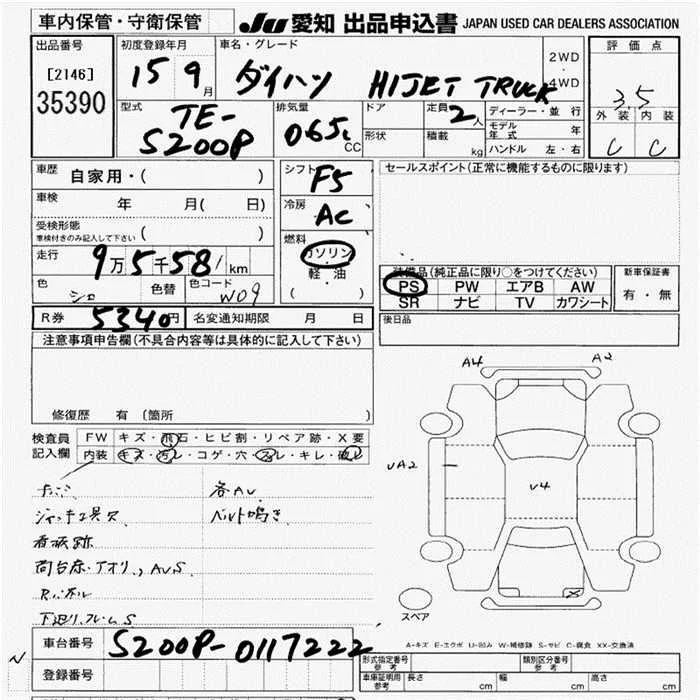 車内保管・守衛保管
JU 愛知 出品申込書 JAPAN USED CAR DEALERS ASSOCIATION
出品番号
[2146]
35390
初度登録年月
15年9月
車名・グレード
ダイハツ HIJET TRUCK
2WD
・
4WD
評価点
3.5
外装 内装
C C
型式
TE-
S200P
排気量
065L
CC
ドア
形状
定員
2人
積載 kg
ディーラー・並行
モデル年式 年
ハンドル 左・右
車歴 自家用・( )
車検 年 月( 日)
受検形態
車検付きのみ記入して下さい ( )
走行 9万5千581km
色 シロ 色替 色コード W09
シフト F5
冷房 AC
燃料
ガソリン
・
軽・油
・
( )
セールスポイント(正常に機能するものに限ります)
装備品(純正品に限り○をつけてください)
PS PW エアB AW
SR ナビ TV カワシート
新車保証書
有・無
R券 5340円 名変通知期限 月 日
後日品
注意事項申告欄(不具合内容等は具体的に記入して下さい)
修復歴 有 〔箇所 〕
検査員
記入欄
FW キズ・飛石・ヒビ割・リペア跡・X要
内装 キズ・汚レ・コゲ・穴・スレ・キレ・破レ
各AU
ジャッキ工具欠 ベルト鳴き
看板跡
荷台床・アオリ、AUS
下廻り、フレームS
A4 A2
UA2
U4
X
スペア
A-キズ E-エクボ U-凹み W-補修跡 S-サビ C-腐食 XX-交換済
車台番号 S200P-0117222
登録番号
N
形式指定番号
参考
類別区分番号
参考
車庫証明用
参考
長さ cm 幅 cm 高さ cm